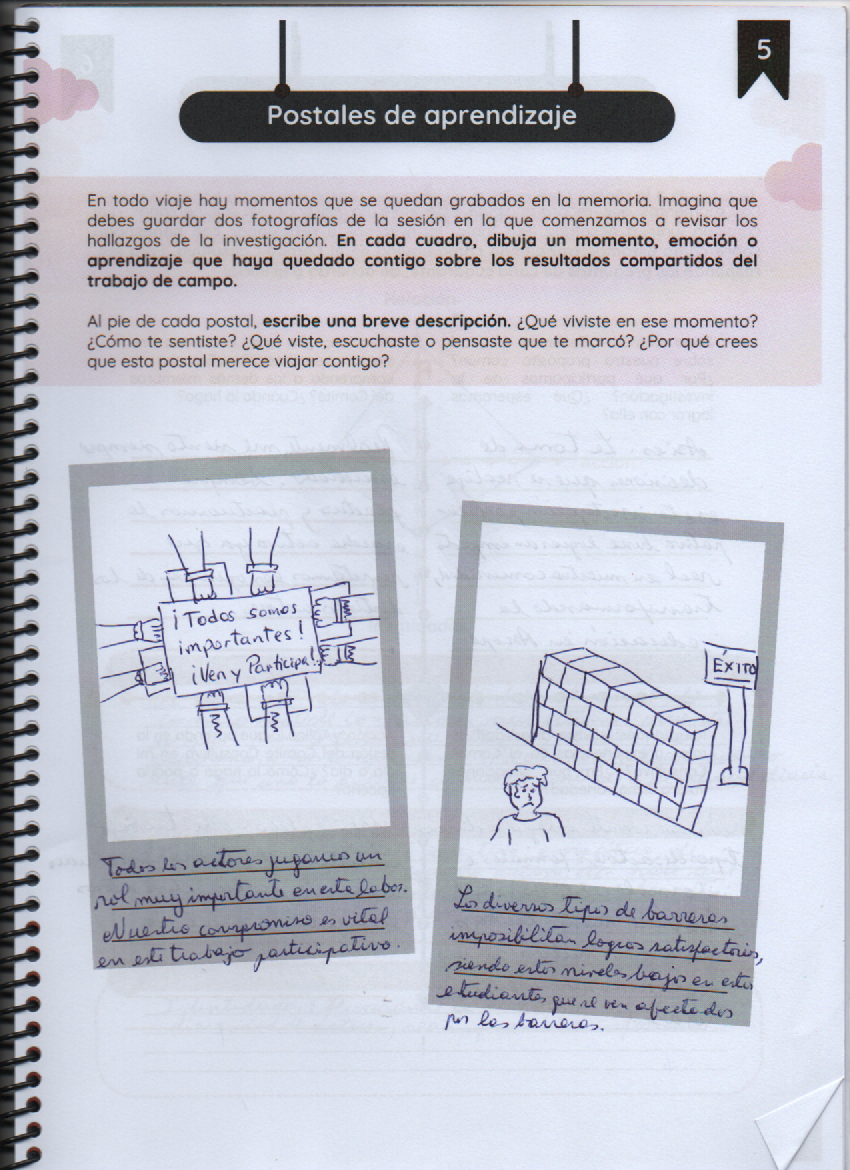 5
Postales de aprendizaje
En todo viaje hay momentos que se quedan grabados en la memoria. Imagina que
debes guardar dos fotografías de la sesión en la que comenzamos a revisar los
hallazgos de la investigación. En cada cuadro, dibuja un momento, emoción o
aprendizaje que haya quedado contigo sobre los resultados compartidos del
trabajo de campo.
Al pie de cada postal, escribe una breve descripción. ¿Qué viviste en ese momento?
¿Cómo te sentiste? ¿Qué viste, escuchaste o pensaste que te marcó? ¿Por qué crees
que esta postal merece viajar contigo?
¡Todos somos
importantes!
¡Ven y Participa!
Todos los actores jugamos un
rol muy importante en esta labor.
Nuestro compromiso es vital
en este trabajo participativo.
ÉXITO
Los diversos tipos de barreras
imposibilitan logros satisfactorios,
siendo estos niveles bajos en estos
estudiantes que se ven afectados
por las barreras.